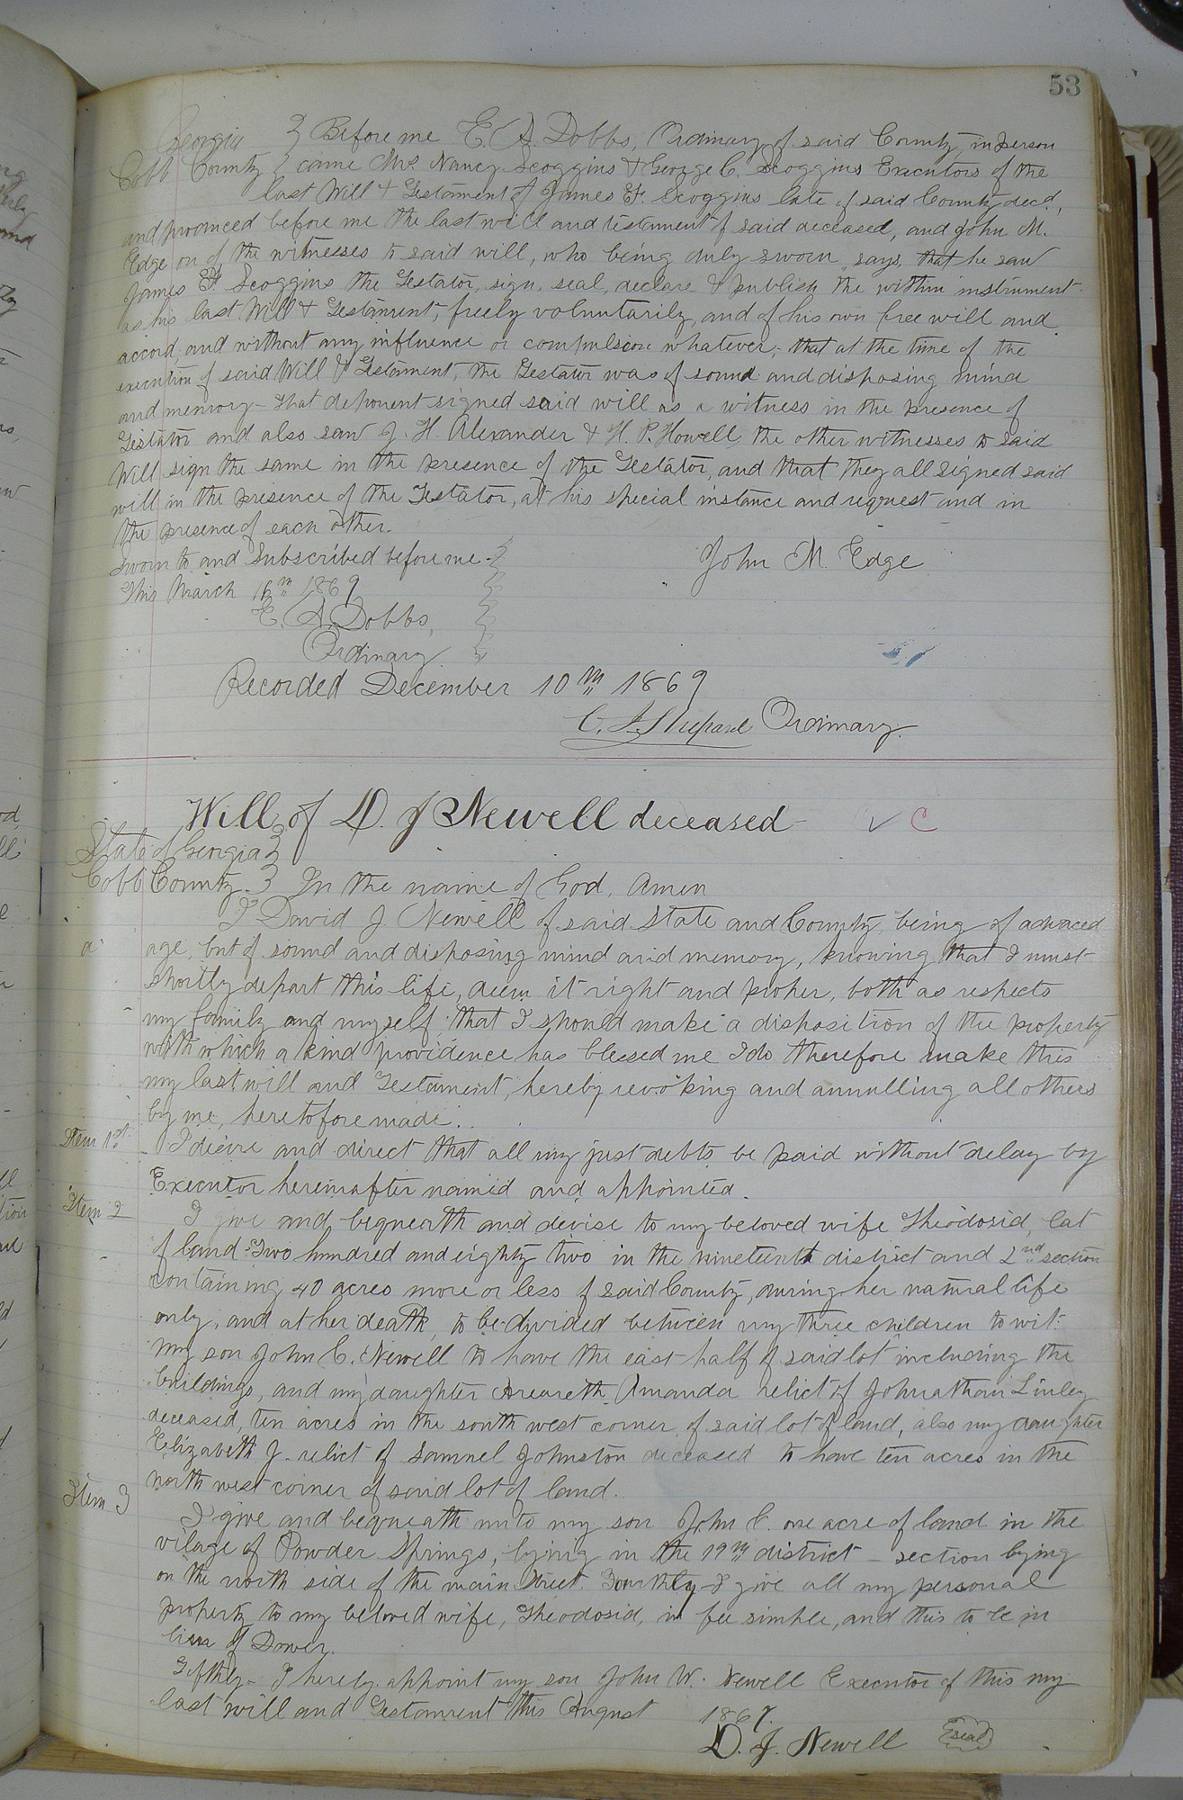 53
Georgia } Before me E. A. Dobbs, Ordinary of said County in person
Cobb County } came Mrs. Nancy Scoggins & George C. Scoggins Executors of the
last Will & Testament of James F. Scoggins late of said County decd,
and produced before me the last will and testament of said deceased, and John M.
Edge on of the witnesses to said will, who being duly sworn says, that he saw
James F. Scoggins the Testator, sign, seal, declare & publish the within instrument
as his last Will & Testament, freely voluntarily, and of his own free will and
accord, and without any influence or compulsion whatever, that at the time of the
execution of said Will & Testament, the Testator was of sound and disposing mind
and memory - that deponent signed said will as a witness in the presence of
Testator and also saw J. H. Alexander & H. P. Howell the other witnesses to said
Will sign the same in the presence of the Testator, and that they all signed said
will in the presence of the Testator, at his special instance and request and in
the presence of each other.
Sworn to and Subscribed before me
John M. Edge
This March 1869
E. A. Dobbs,
Ordinary
Recorded December 10th 1869
Ordinary
Will of D. J Newell deceased C
State of Georgia }
Cobb County } In the name of God, Amen
I David J Newell of said State and County, being of advaced
age, but of sound and disposing mind and memory, knowing that I must
shortly depart this life, deem it right and proper, both as respects
my family and myself that I should make a disposition of the property
with which a kind providence has blessed me I do therefore make this
my last will and Testament, hereby revoking and annulling all others
by me, heretofore made.
Item 1st I desire and direct that all my just debts be paid without delay by
Executor hereinafter named and appointed.
Item 2 I give and bequeath and devise to my beloved wife Theodosid, lat
of land Two hundred and eighty two in the nineteenth district and 2nd section
containing 40 acres more or less of said County, during her natural life
only, and at her death, to be divided between my three children to wit:
My son John C. Newell to have the east half of said lot including the
buildings, and my daughter Amanda relict of Johnathan Linley
deceased, ten acres in the south west corner of said lot of land, also my daughter
Elizabeth J. relict of Samuel Johnston deceased to have ten acres in the
north west corner of said lot of land.
Item 3 I give and bequeath unto my son John C. one acre of land in the
vilage of Powder Springs, lying in the 19th district - section lying
on the north side of the main Street. Fourthly I give all my personal
property to my beloved wife, Theodosid, in fee simple, and this to be in
lieu of Dower.
Fifthly - I hereby appoint my son John W. Newell Executor of this my
last will and Testament this August 1867.
D. J. Newell seal